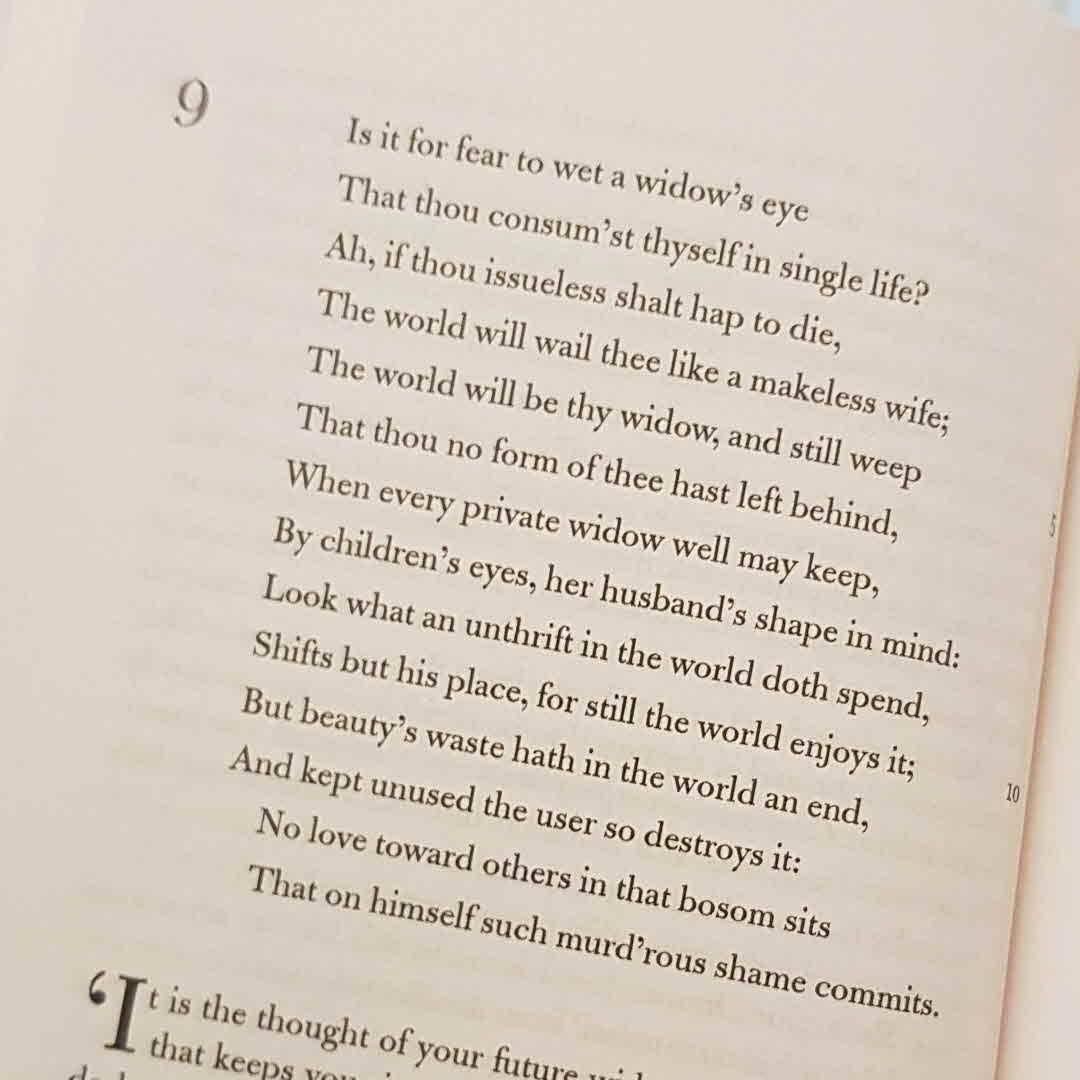 9
Is it for fear to wet a widow's eye
That thou consum'st thyself in single life?
Ah, if thou issueless shalt hap to die,
The world will wail thee like a makeless wife;
The world will be thy widow, and still weep
5
That thou no form of thee hast left behind,
When every private widow well may keep,
By children's eyes, her husband's shape in mind:
Look what an unthrift in the world doth spend,
Shifts but his place, for still the world enjoys it;
10
But beauty's waste hath in the world an end,
And kept unused the user so destroys it:
No love toward others in that bosom sits
That on himself such murd'rous shame commits.
‘It is the thought of your future
that keeps